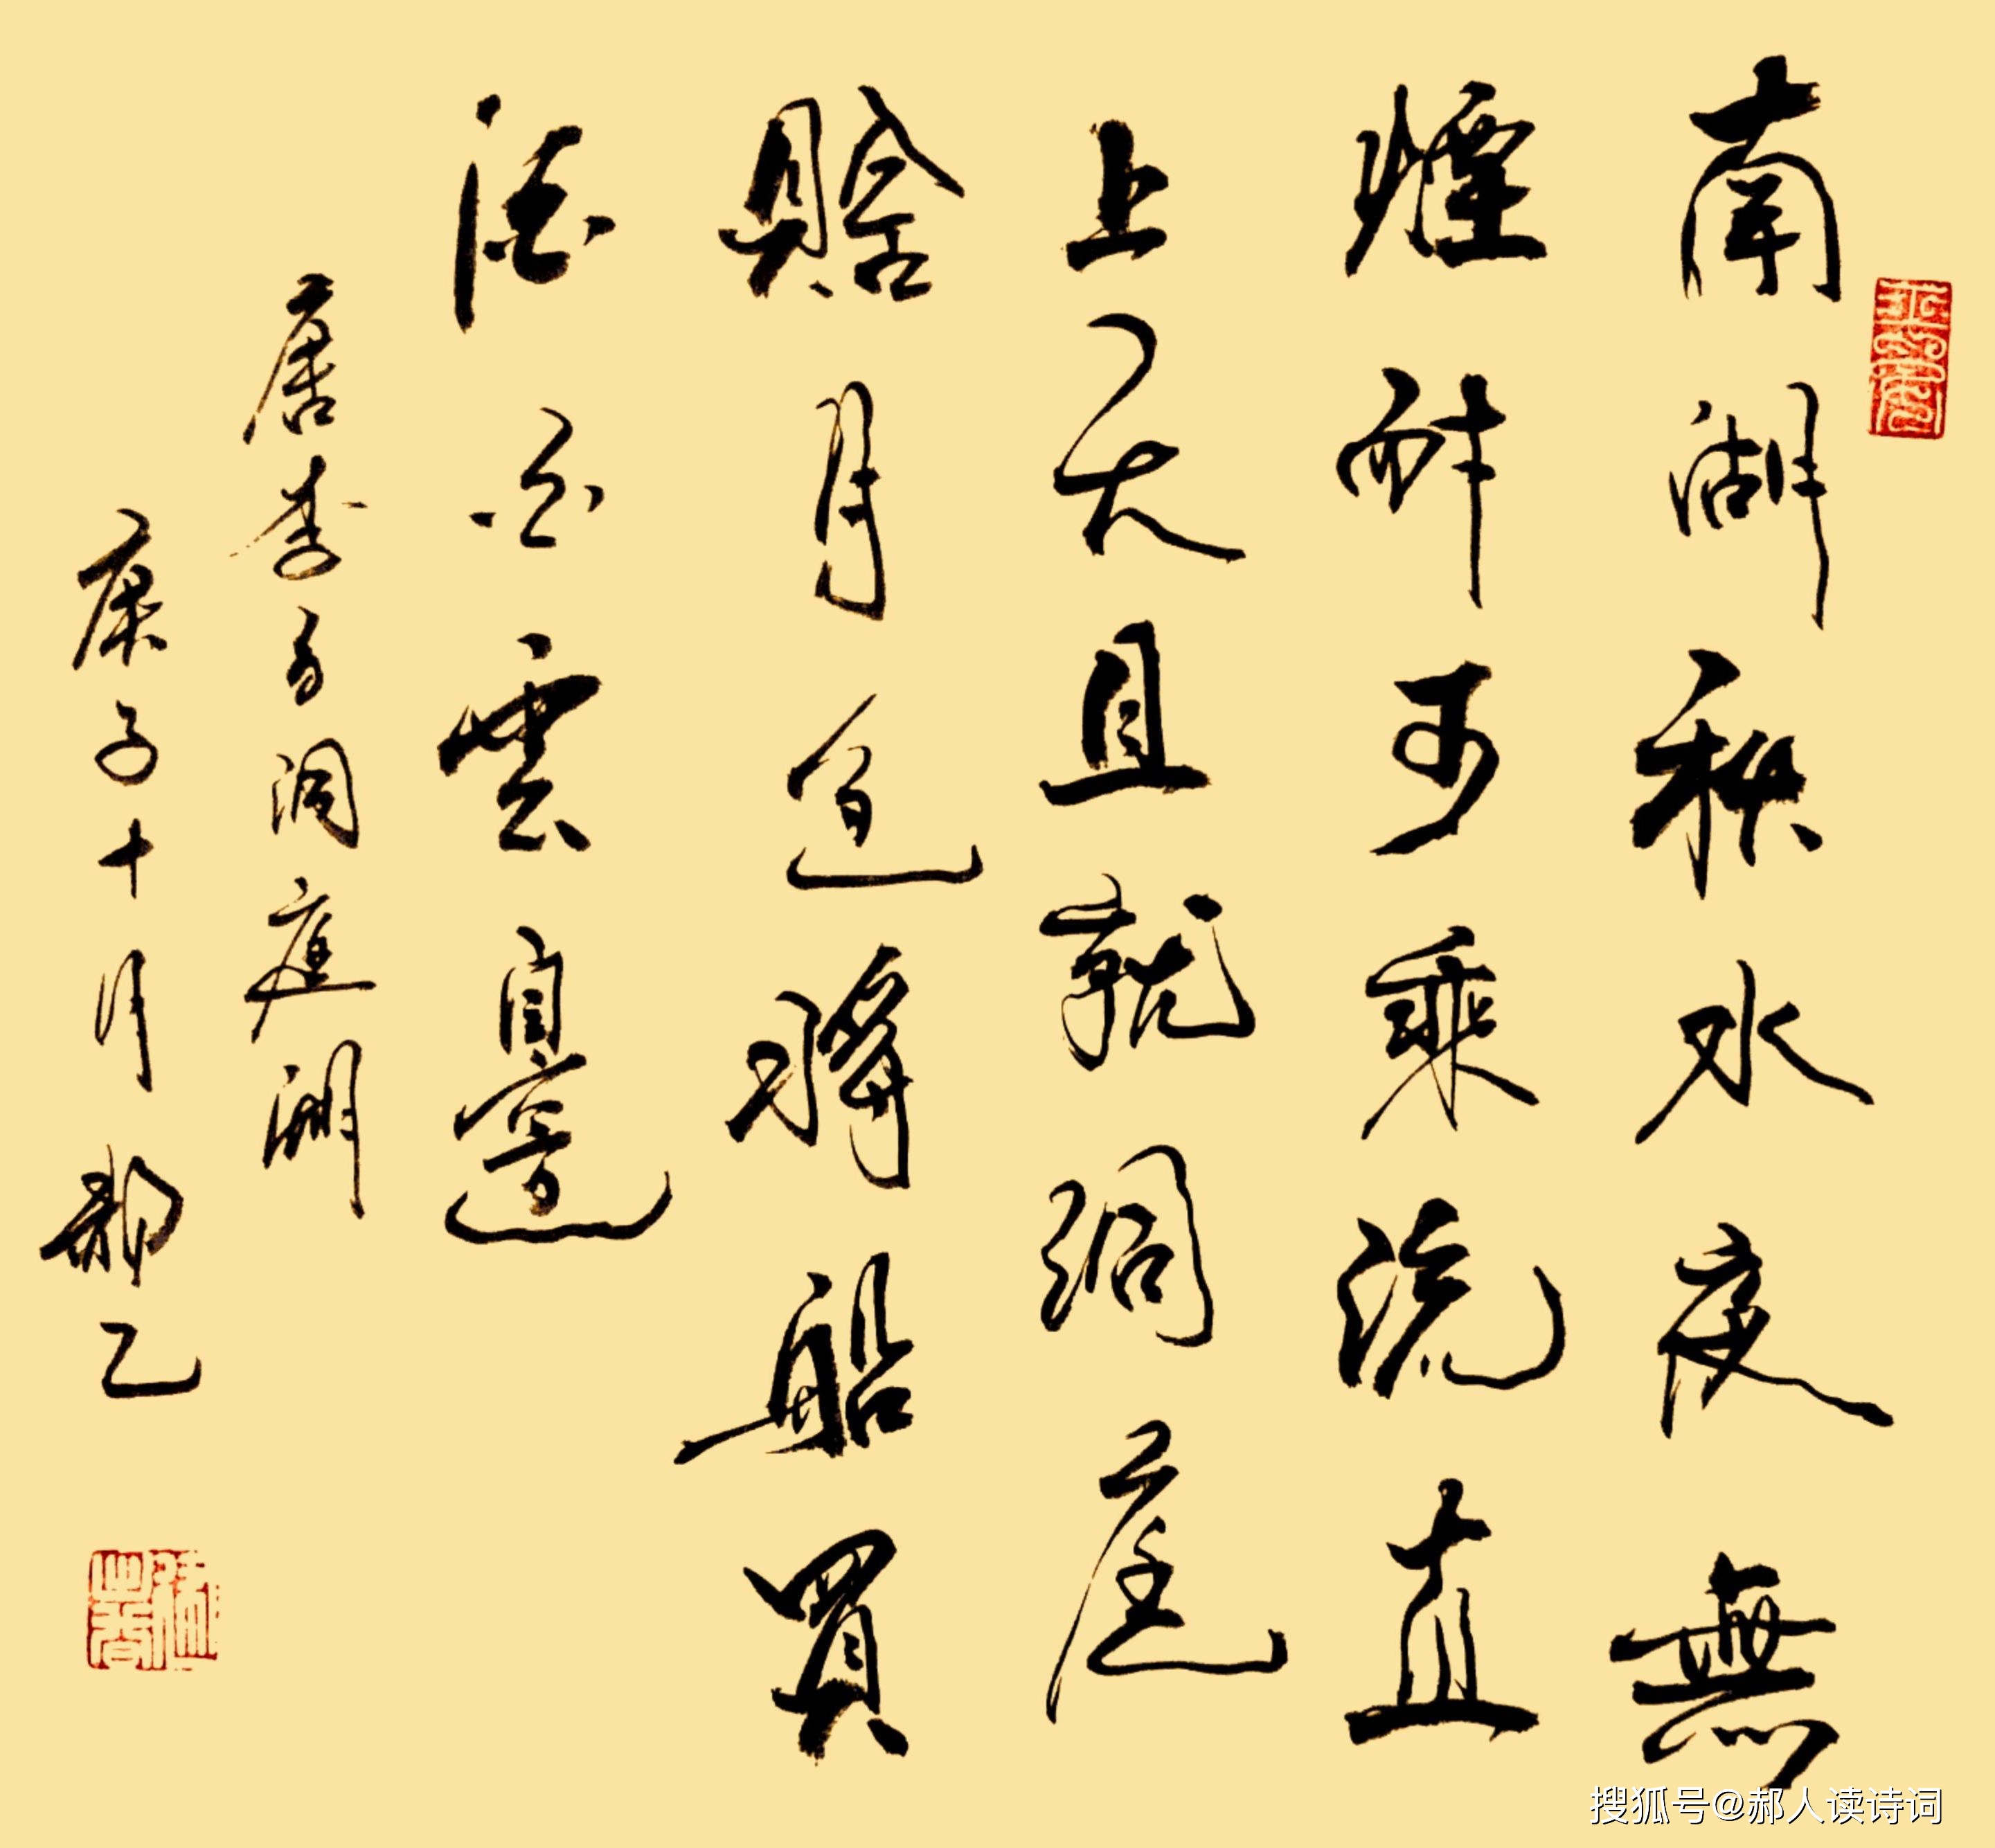 南湖秋水夜無
煙耐可乘流直
上天且就洞庭
賒月色將船買
酒白雲邊
唐李白洞庭湖
庚子十月乙
搜狐号@郝人读诗词